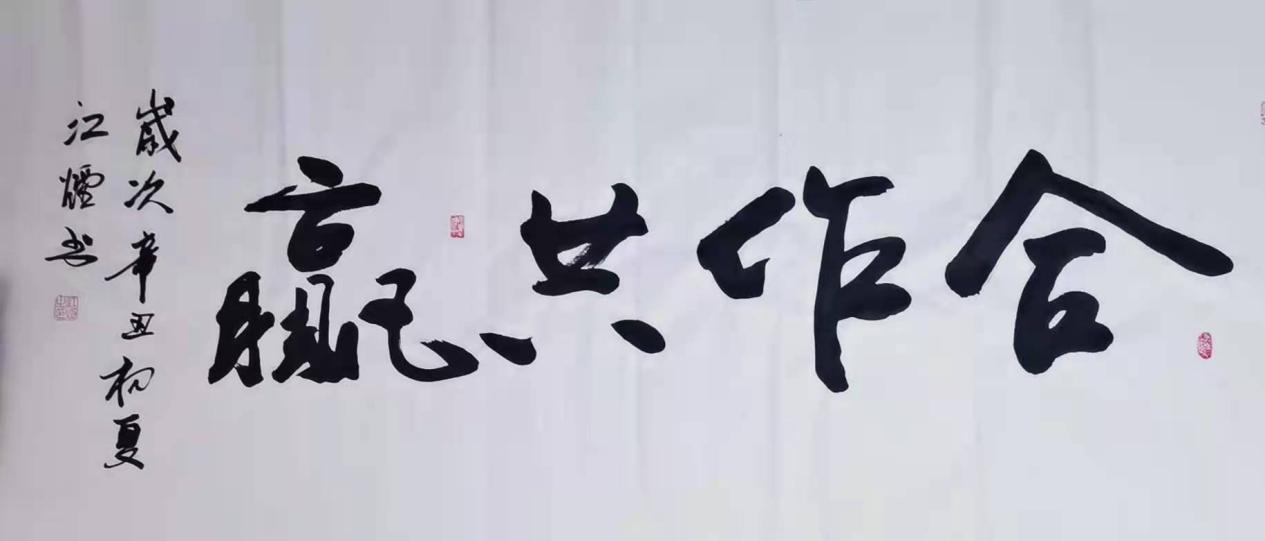 合作共赢
歲次辛丑初夏
江煙书